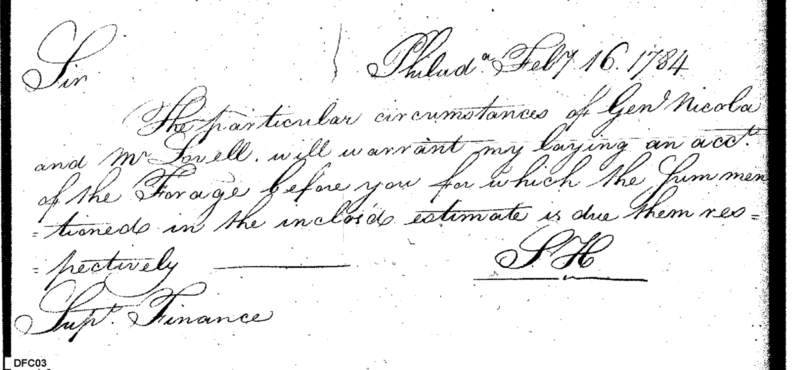 Sir
Philad.a Feby 16. 1784
The particular circumstances of Gen.l Nicola
and Mr Lovell. will warrant my laying an acct.
of the Forage before you for which the Sum men
=tioned in the inclos'd estimate is due them res=
=pectively
S. H
Supt. Finance
DFC03